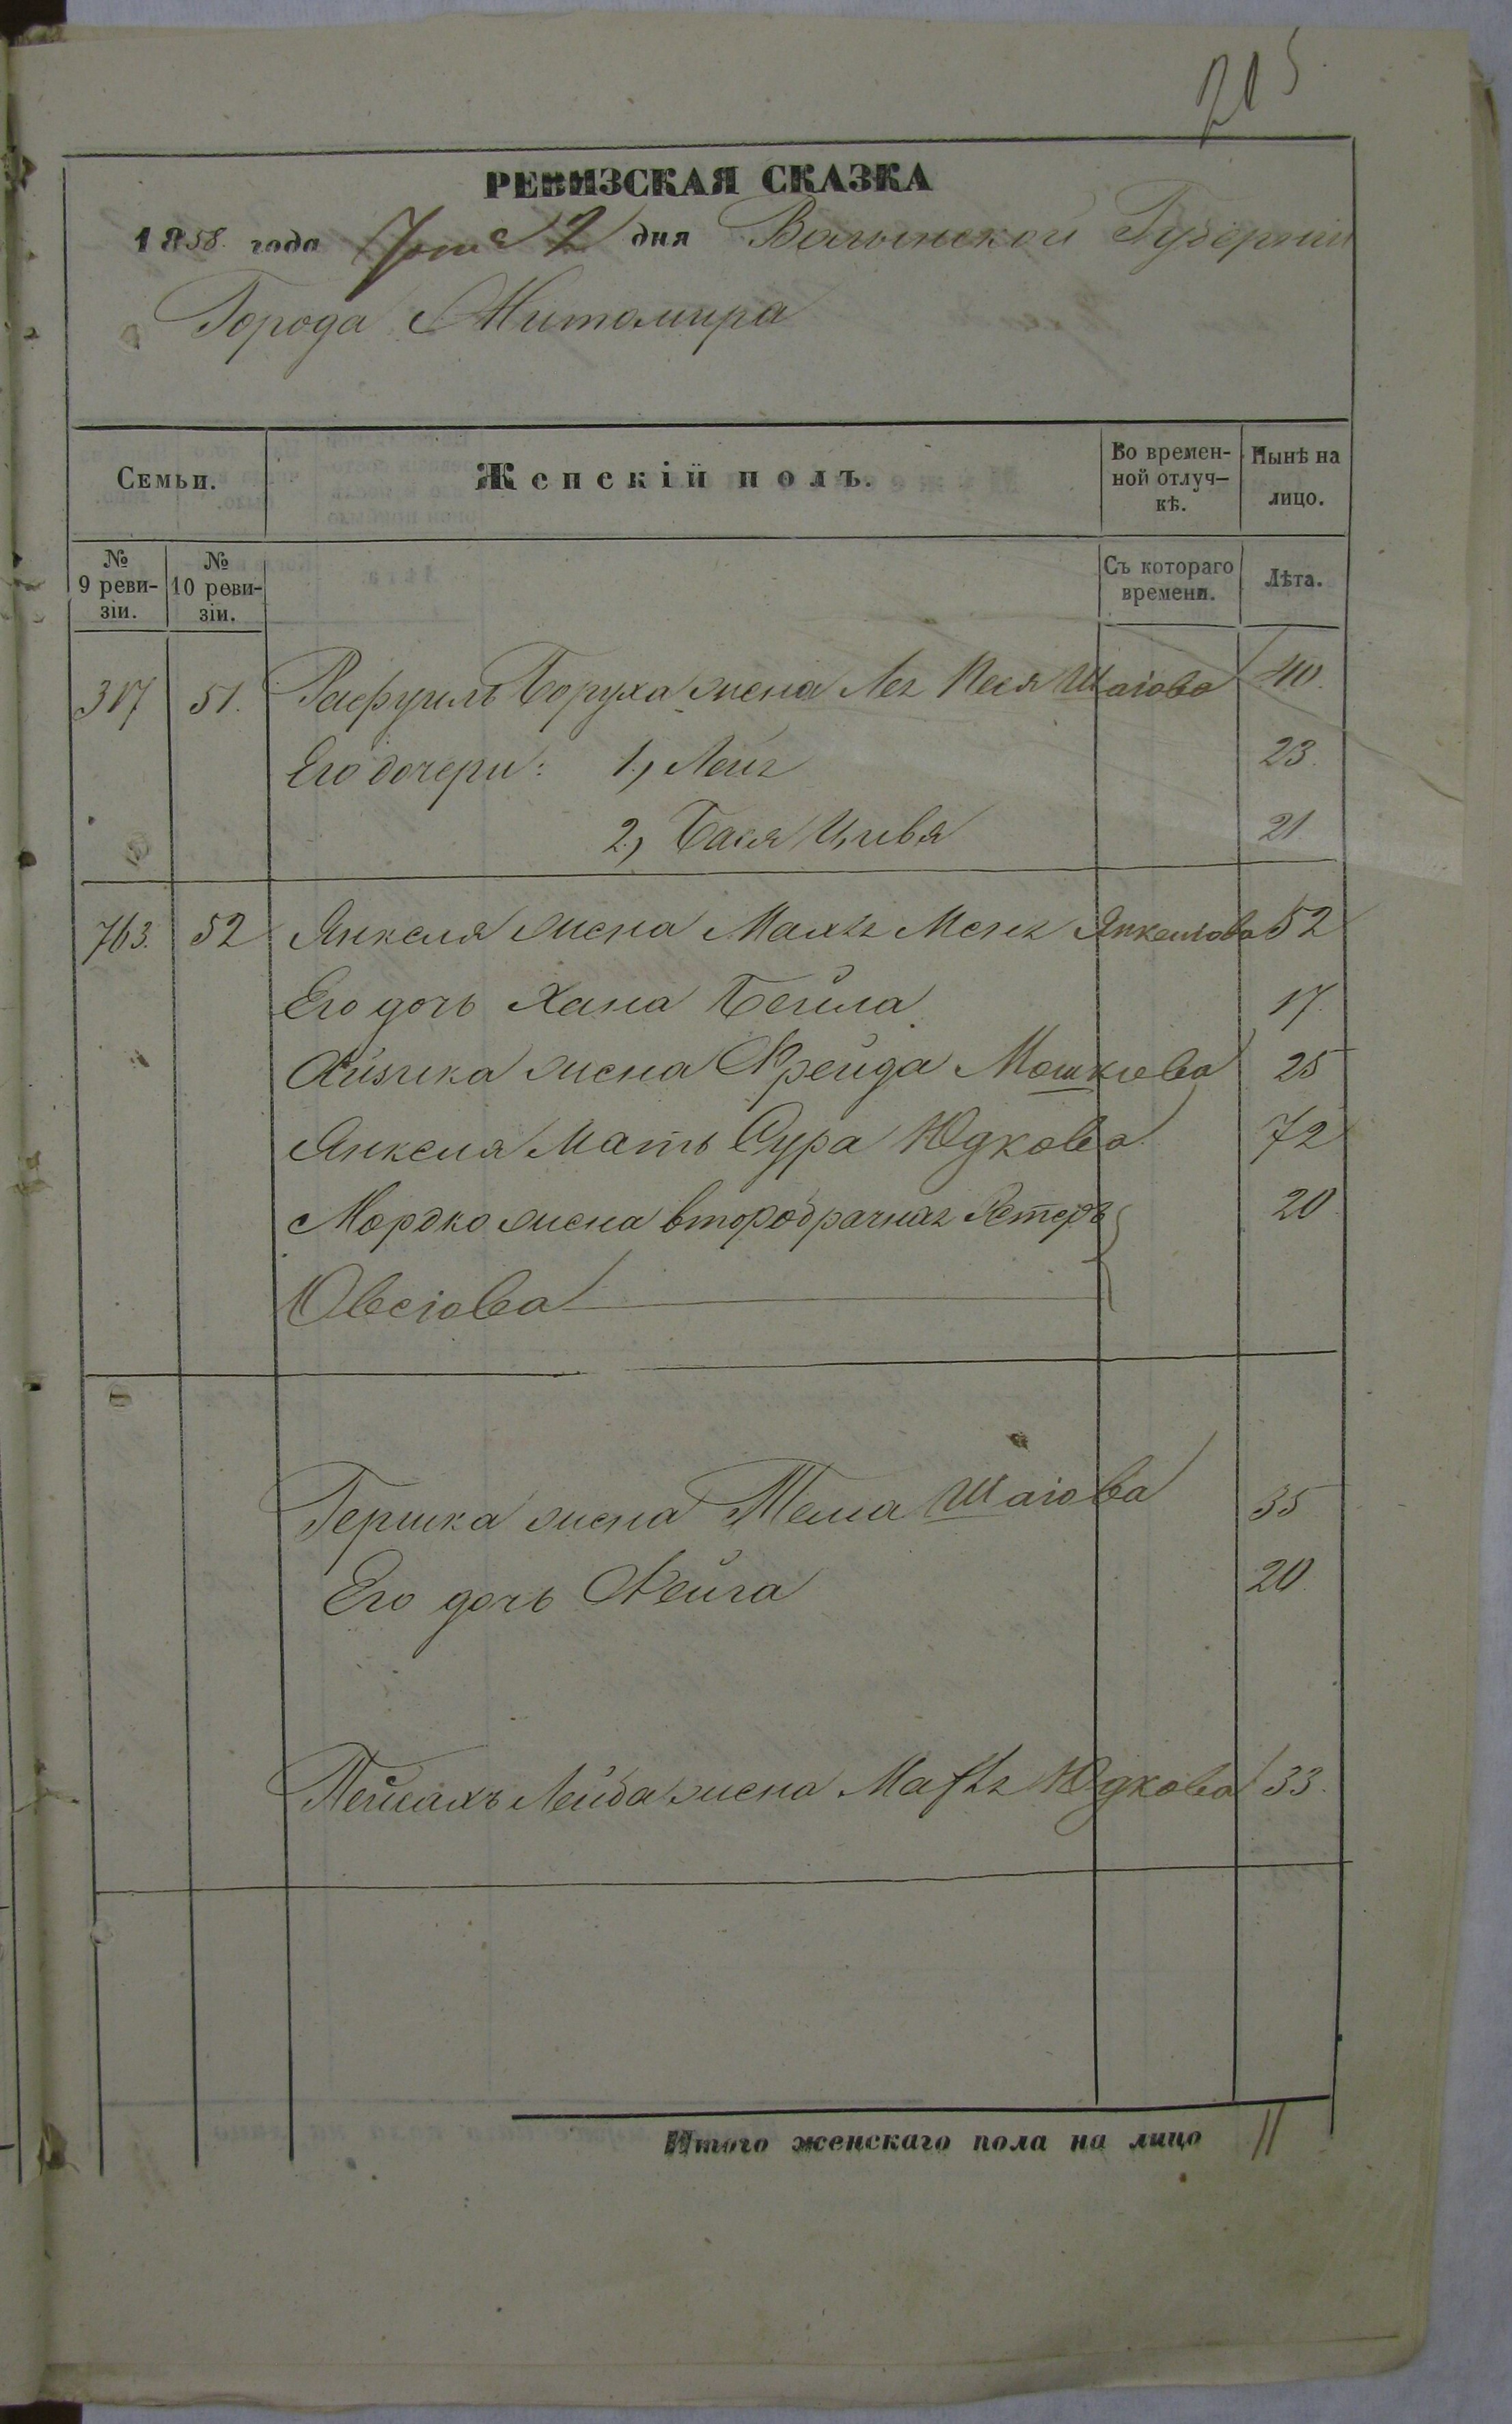 205
РЕВИЗСКАЯ СКАЗКА
1858 года Іюня 2 дня Волынской Губерніи
Города Житомира
Семьи.
Женскій полъ.
Во времен-
ной отлуч-
кѣ.
Нынѣ на
лицо.
№
9 реви-
зіи.
№
10 реви-
зіи.
Съ котораго
времени.
Лѣта.
317 51. Рафуилъ Боруха жена Лея Песя Шаіова 40.
Его дочери: 1, Лея 23.
2, Бася Цивя 21
763. 52 Янкеля жена Маля Меня Янкеліова 52
Его дочь Хана Бейла 17.
Айзика жена Фрейда Мошкіова 25
Янкеля мать Сура Юдкова 72
Мордко жена второбрачная Эстеръ 20
Овсіова
Гершка жена Тема Шаіова 35
Его дочь Фейга 20.
Пейсахъ Лейба жена Юдкова 33.
Итого женскаго пола на лицо 11